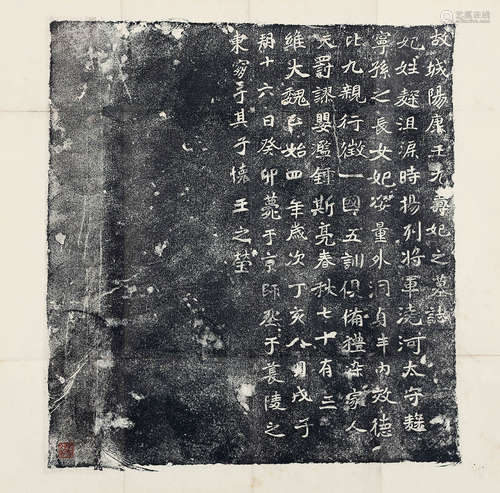 故城陽康王元壽妃之墓誌
妃姓麹沮渠時揚列將軍澆河太守麹
寧孫之長女妃姿量外洞貞丰內效德
比九親行徵一國五訓俱脩禮諫家人
天罰謬嬰濫鍾斯亮春秋七十有三
維大魏正始四年歲次丁亥八月戊子
朔十六日癸卯薨于京師𦵏于襄陵之
東穸于其子懷王之塋